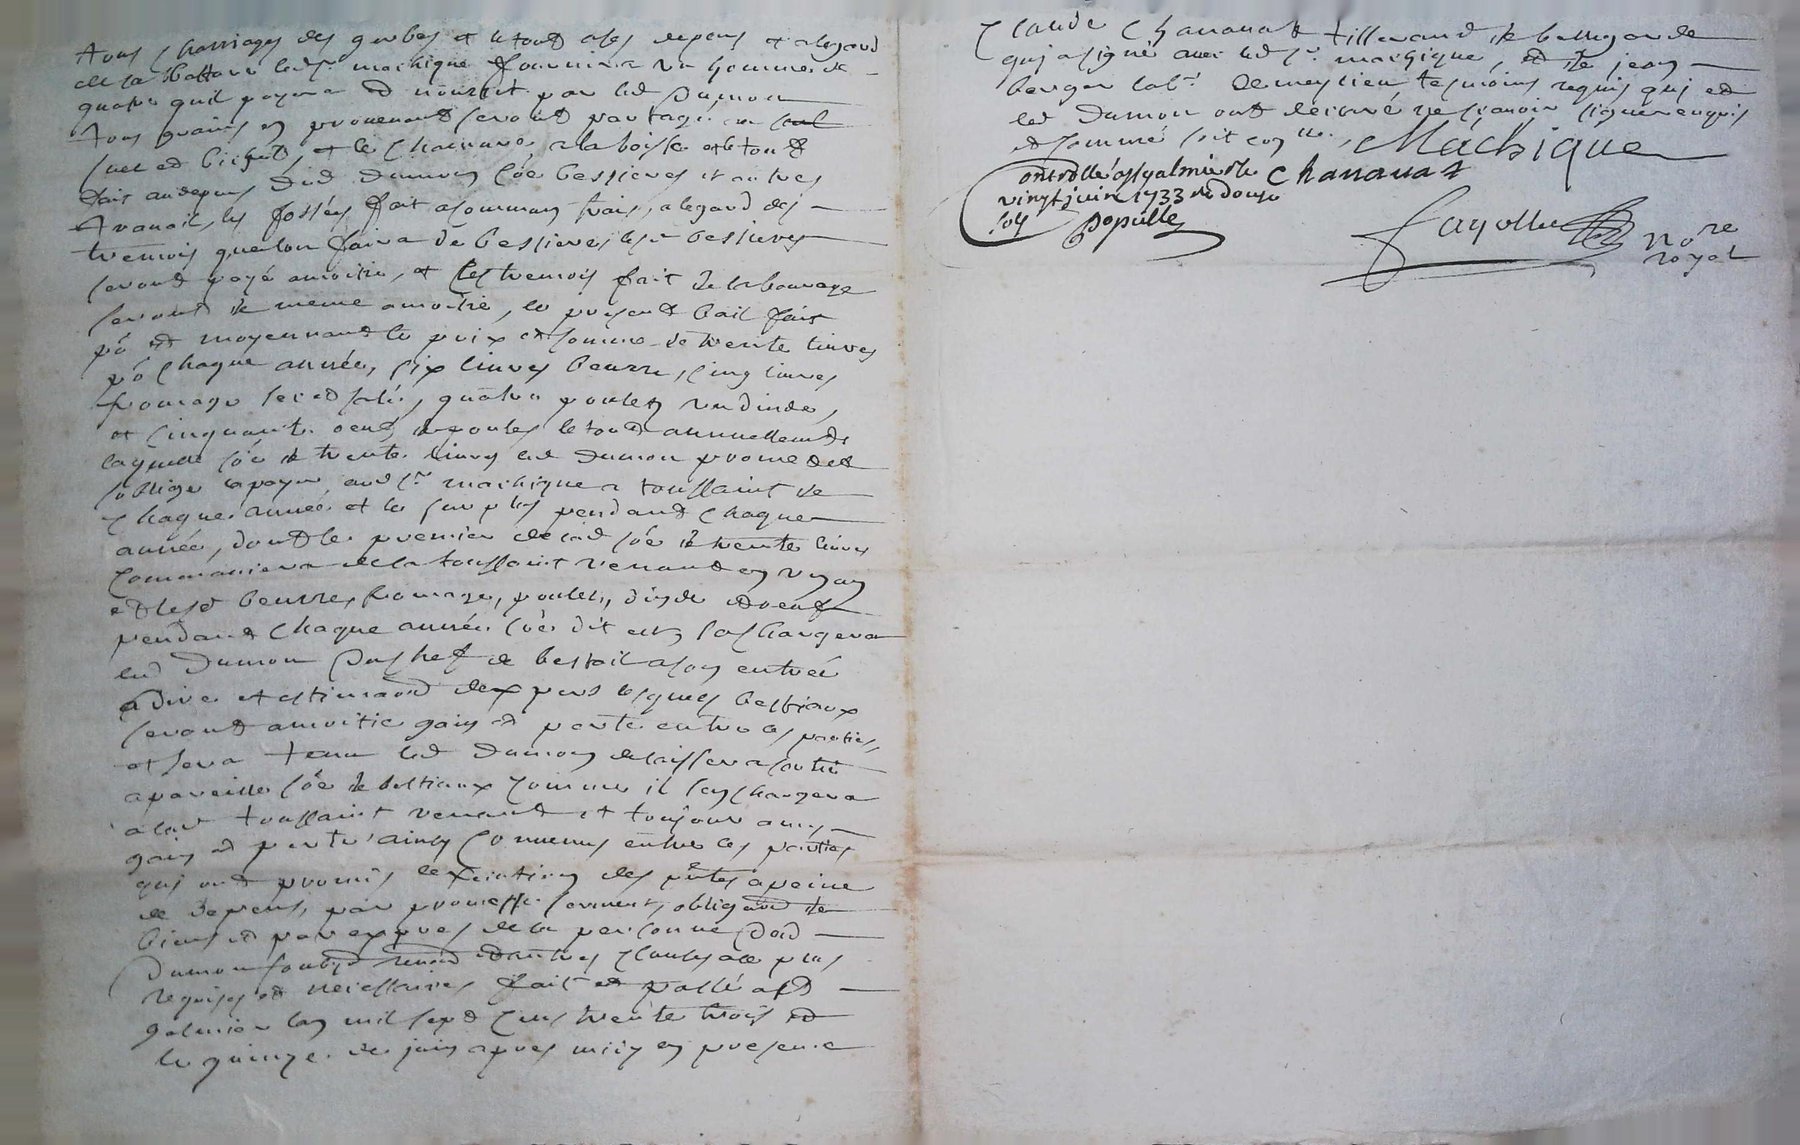 tous charriages des gerbes et le tout a ses depens et a legard
de la batture led sr machique fournira un homme de
quatre quil payera et nourrit par led dumon
tous grains en provenant seront partagé au
suel et bichet, et le chanvre a la boisse et le tout
fait au depens dud dumon
les fossés fait a commun frais, a legard des
tremois que lon faira de bessieres les bessieres
seront payé a moitie, et les tremois fait de labourage
seront de meme a moitié, le present bail fait
pr et moyennant le prix et somme de trente livres
pr chaque année, six livres beurre, cinq livres
fromage sec et salé, quatre poulets un dinde,
et cinquante oeufs de poules le tout annuellement
laquelle sōe de trente livres led dumon promet et
soblige a payer aud sr machique a toussaint de
chaque année et le surplus pendant chaque
année, dont le premier de lad sōe de trente livres
commancera de la toussaint venant en un an
et lesd beurre, fromage, poulets, dinde et oeufs
pendant chaque année cōe dit est, se chargera
led dumon du chef de bestail a son entrée
a dire et estimation dexpers lesquels bestiaux
seront a moitie gain et perte entre les parties,
et sera tenu led dumon de laisser a sa sortie
a pareille sōe de bestiaux comme il sen chargera
a lad toussaint venant et toujour a my
gain et perte ainsy convenus entre les parties
qui ont promis lexecution des pntes a peine
de depens, par promesse serment, obligation de
biens et par expres de la personne dud
dumon soubm renon et autres clauses a ce plus
requises et necessaires fait et passé a st
galmier lan mil sept cens trente trois et
le quinze de juin apres midy en presence
Claude Chananat tisserand de bellegarde
qui a signé avec led sr machique, et de jean
berger labr de meylieu tesmoins requis qui et
led dumon ont declaré ne scavoir signer enquis
et sommé soit con lle.
Machique
Chananat
Controllé a st galmier le
vingt juin 1733 re douze
sols
Populle
fayolle nore
royal